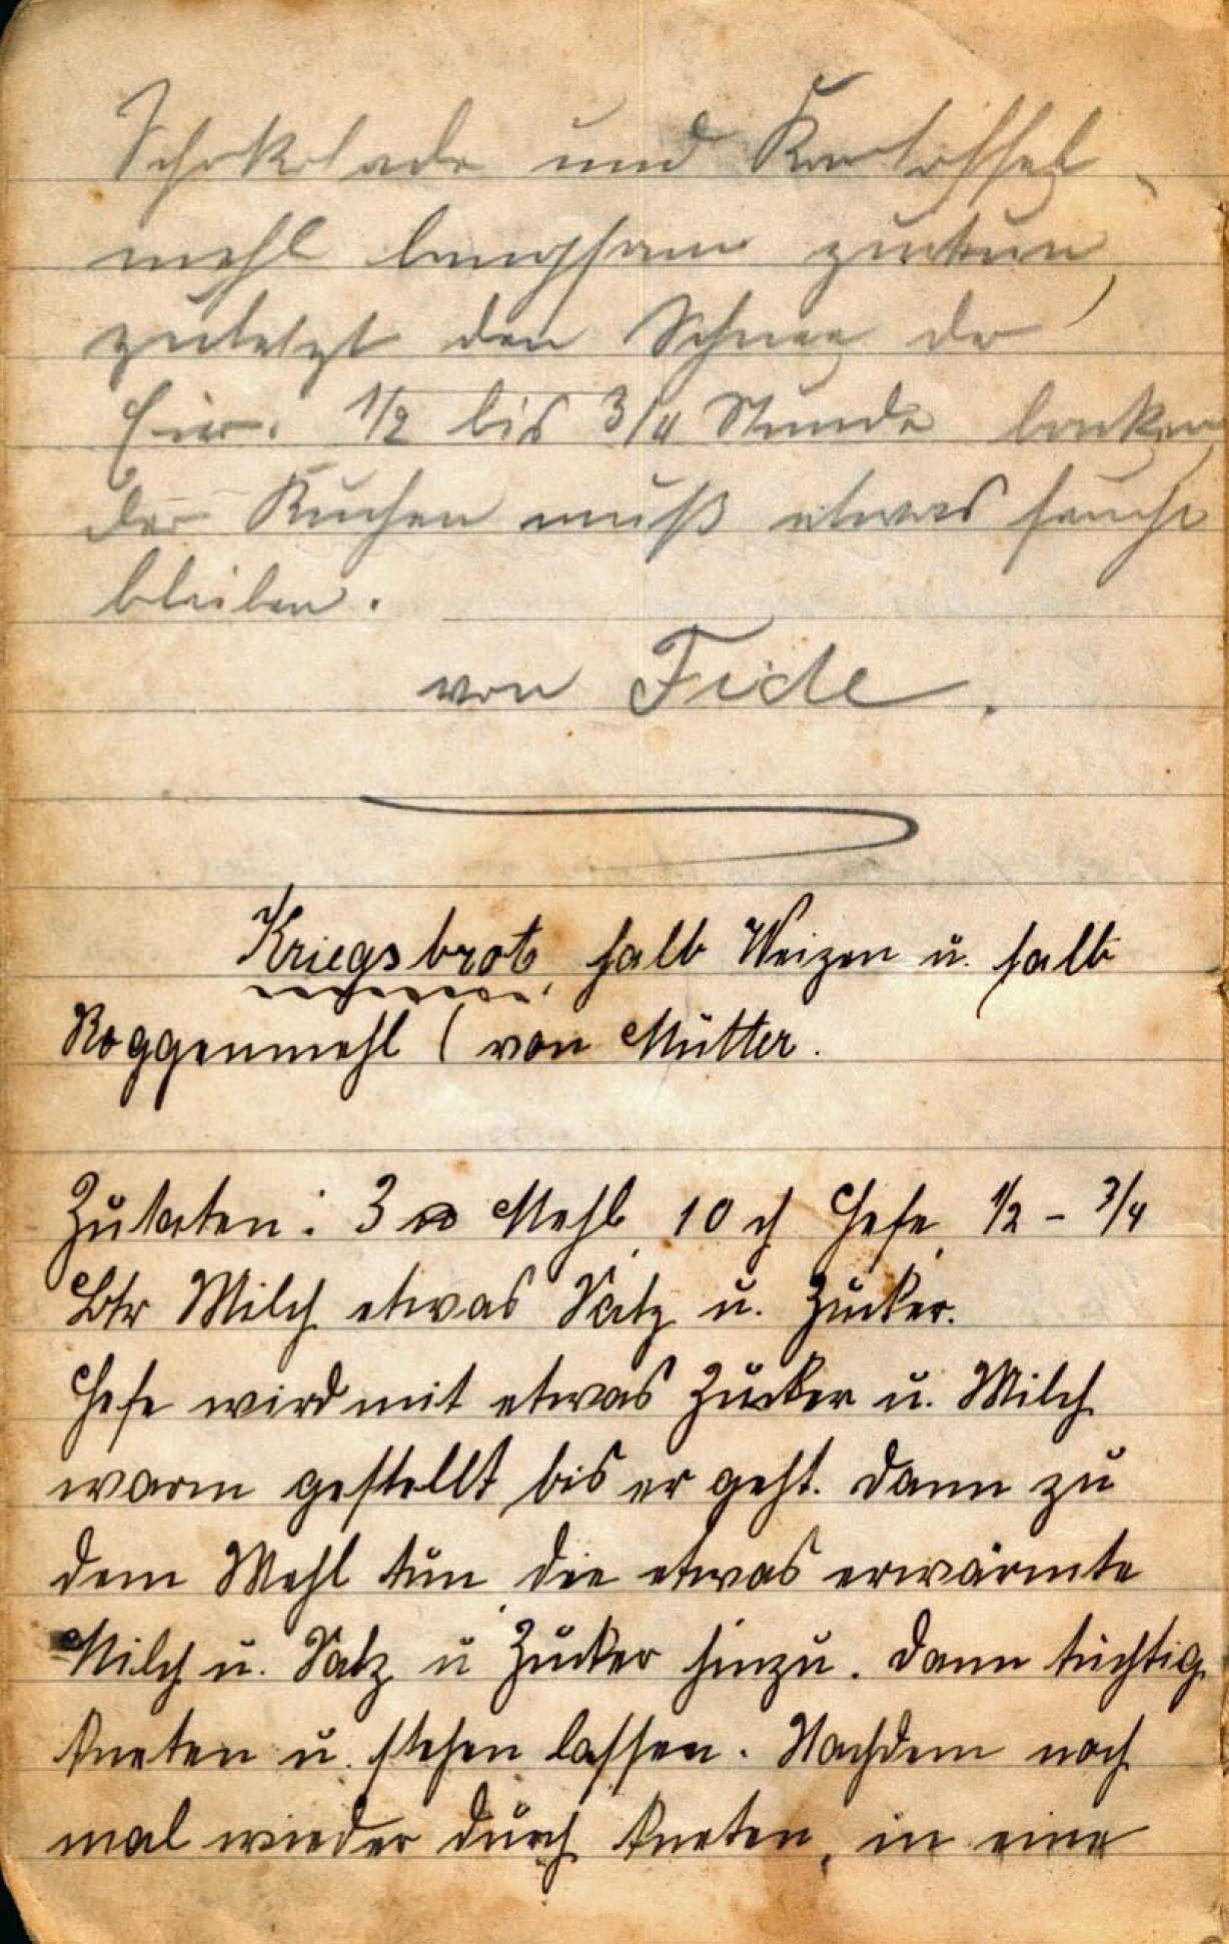 Schokolade und Kartoffel-
mehl langsam zutun,
zuletzt den Schnee der
Eier. 1/2 bis 3/4 Stunde backen
der Kuchen muß etwas feucht
bleiben.
von Fidle.
Kriegsbrot, halb Weizen u. halb
Roggenmehl (von Mutter.
Zutaten: 3 ℔ Mehl, 10 ₰ Hefe, 1/2 - 3/4
Ltr Milch etwas Salz u. Zucker.
Hefe wird mit etwas Zucker u. Milch
warm gestellt bis er geht. Dann zu
dem Mehl tun die etwas erwärmte
Milch u. Salz u Zucker hinzu. Dann tüchtig
kneten u. stehen lassen. Nachdem noch
mal wieder durch kneten, in eine